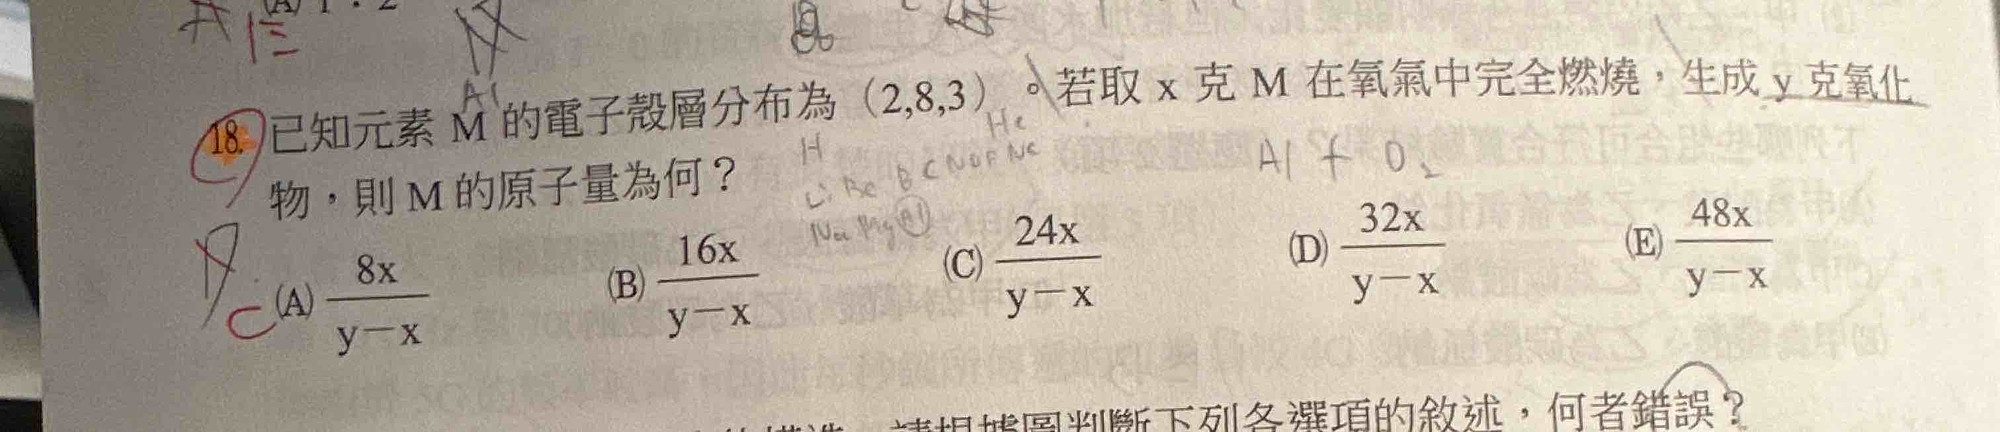 18. 已知元素 M 的電子殼層分布為（2,8,3）。若取 x 克 M 在氧氣中完全燃燒，生成 y 克氧化
物，則 M 的原子量為何？
Al
H He
Li Be B C N O F Ne
Na Mg Al
Al + O₂
C
(A) 8x/y－x (B) 16x/y－x (C) 24x/y－x (D) 32x/y－x (E) 48x/y－x
請根據圖判斷下列各選項的敘述，何者錯誤？